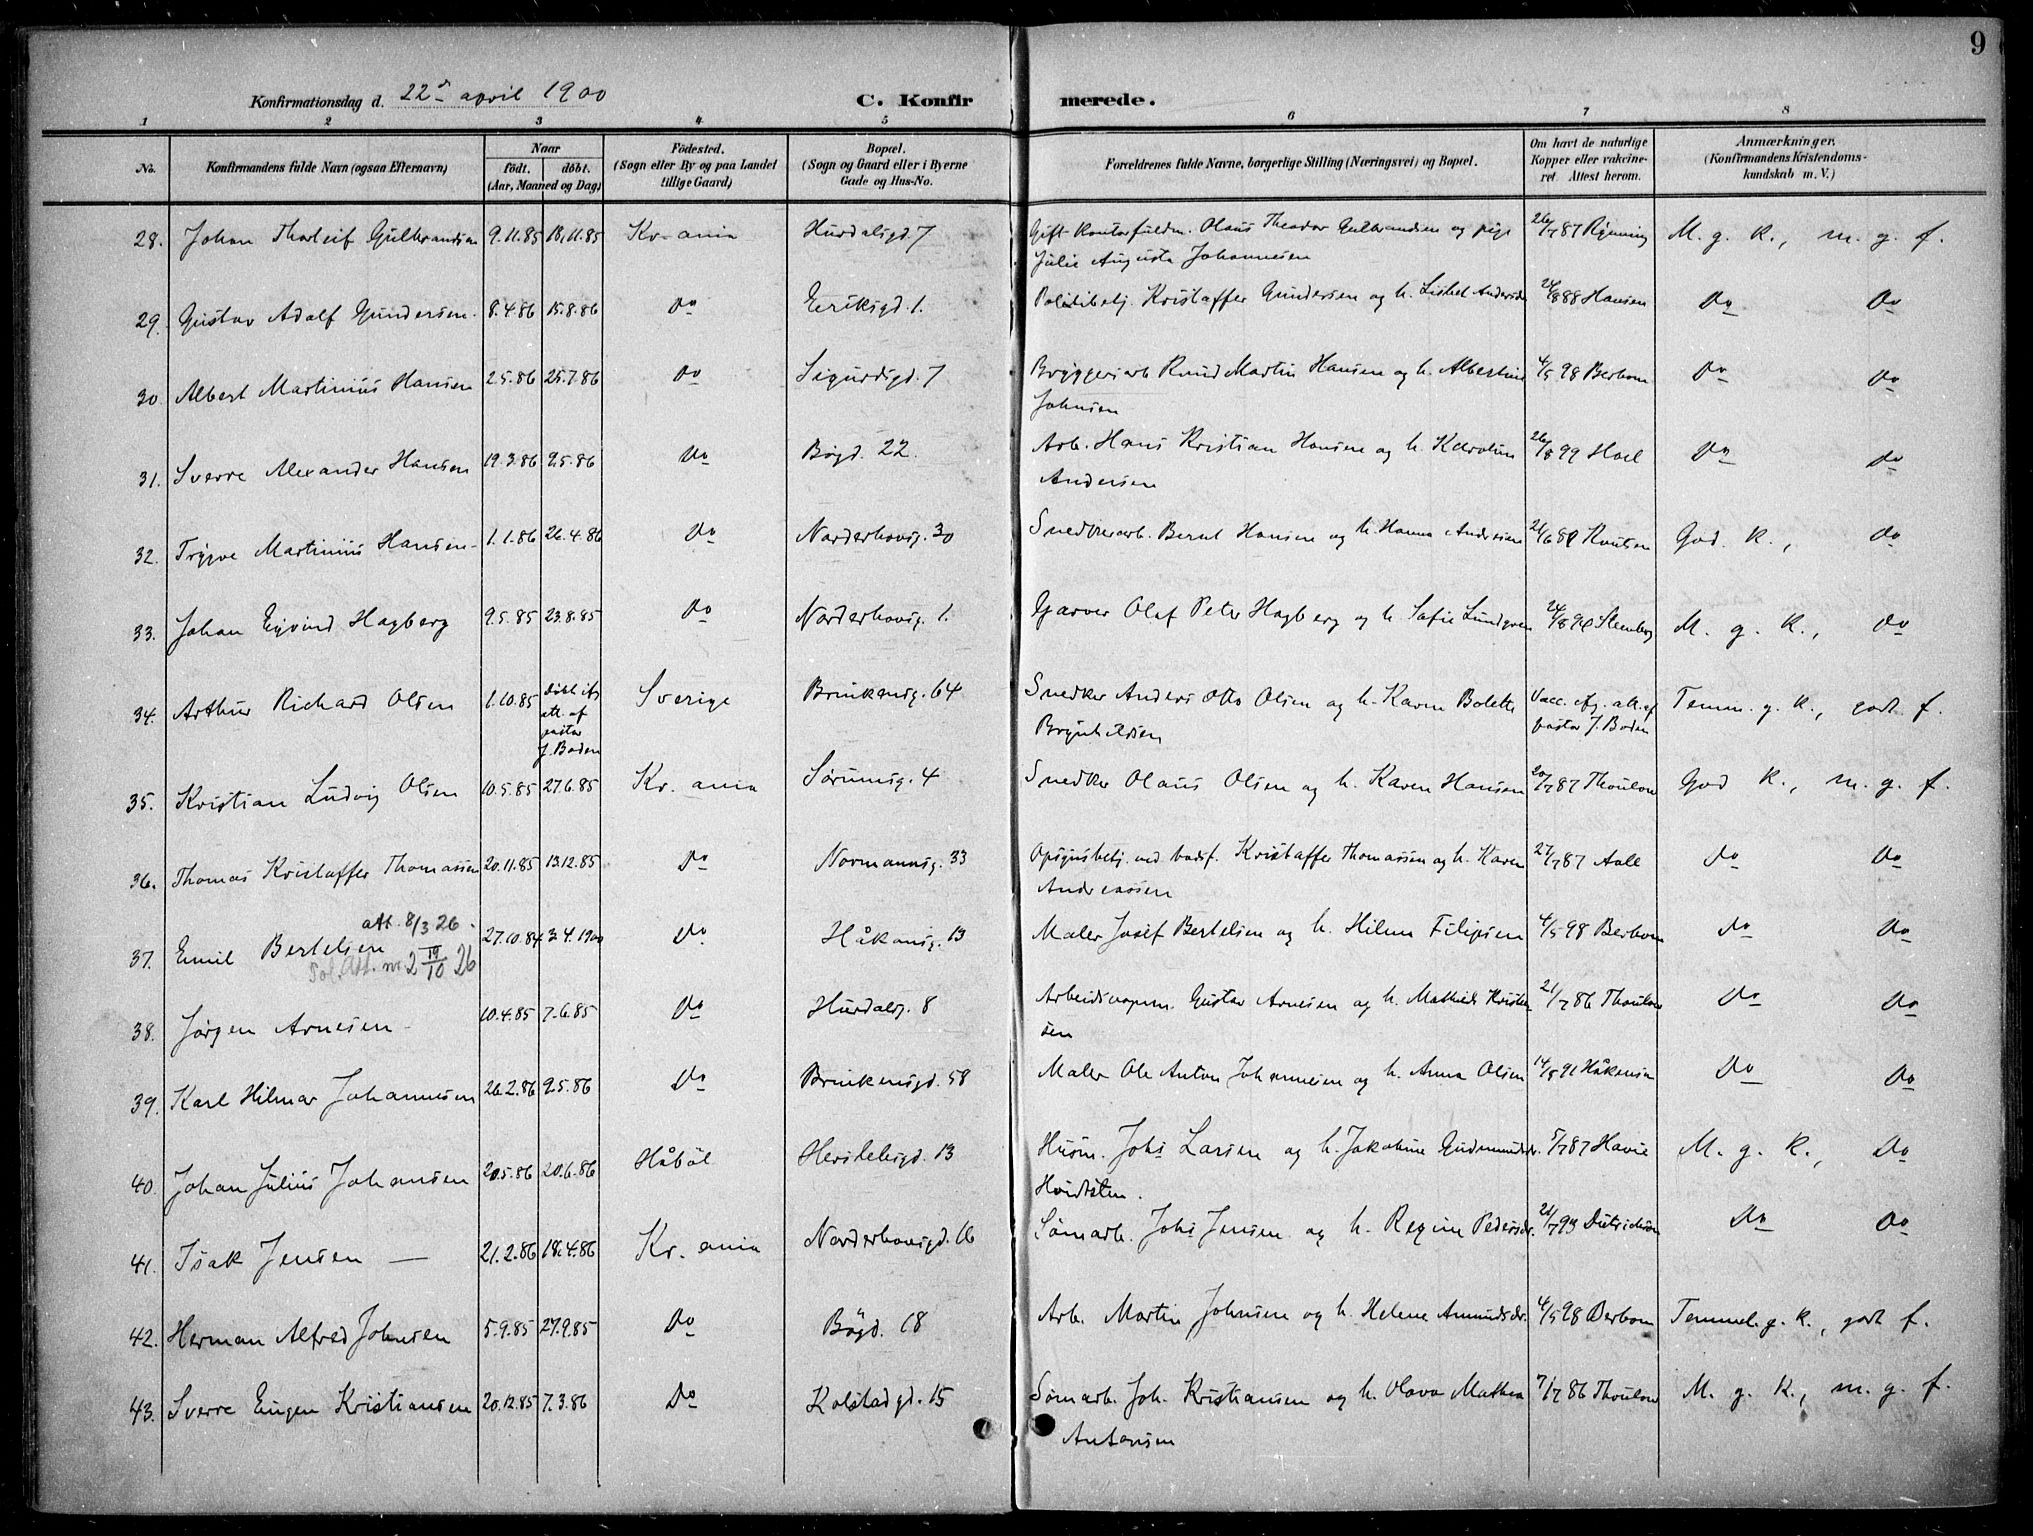 9
Konfirmationsdag d. 22d april 1900 C. Konfir merede.
1 2 3 4 5 6 7 8
No. Konfirmandens fulde Navn (ogsaa Efternavn) Naar födt. döbt. (Aar, Maaned og Dag) Födested. (Sogn eller By og paa Landet tillige Gaard) Bopæl. (Sogn og Gaard eller i Byerne Gade og Hus-No. Forældrenes fulde Navne, borgerlige Stilling (Næringsvei) og Bopæl. Om havt de naturlige Kopper eller vakcineret. Attest herom. Anmærkninger. (Konfirmandens Kristendomskundskab m. V.)
28. Johan Thorleif Gulbrandsen 9.11.85 18.11.85 Kr.ania Hurdalsgd. 7 Gift Kontorfuldm. Olaus Theodor Gulbrandsen og pige 26/7 87 Rynning M. g. K., m. g. f.
Julie Augusta Johannesen
29. Gustav Adolf Gundersen 8.4.86 15.8.86 Do Eriksgd. 1. Politibetj. Kristoffer Gundersen og h. Lisbet Andersdr 28/8 88 Hansen Do Do
30. Albert Martinius Hansen 2.5.86 25.7.86 Do Sigurdsgd. 7 Bryggeriarb Knud Martin Hansen og h. Albertine 4/5 98 Berbom Do Do
Johnsen
31. Sverre Alexander Hansen 19.3.86 9.5.86 Do Bøgd. 22. Arb. Hans Kristian Hansen og h. Karoline 26/8 99 Hoel Do Do
Andersen
32. Trygve Martinius Hansen 1.1.86 26.4.86 Do Norderhovsg. 30 Snedkerarb. Bernt Hansen og h. Hanna Andresen Knutsen God K., Do
33. Johan Eyvind Hagberg 9.5.85 23.8.85 Do Norderhovsg. 1. Garver Olaf Peter Hagberg og h Sofie Lundqven Steenberg M. g. K., Do
34. Arthur Richard Olsen 1.10.85 Döbt if. att. af pastor J. Boden Sverige Brinkensg. 64 Snedker Anders Otto Olsen og h. Karen Bolette Vacc. efg. att. af Temm. g. K., godt f.
Brynhildsen pastor J. Boden
35. Kristian Ludvig Olsen 10.5.85 27.6.85 Kr.ania Sørumsg. 4 Snedker Olaus Olsen og h. Karen Hansen 20/7 87 Thoulow God K., m. g. f.
36. Thomas Kristoffer Thomassen 20.11.85 13.12.85 Do Normannsg. 33 Opsynsbetj. ved Kristoffer Thomassen og h. Karen 27/7 87 Aall Do Do
Andreassen
att. 8/3 26.
37. Emil Bertelsen 27.10.84 3.4.1900 Do Håkonsg. 13 Maler Josef Bertelsen og h. Hilma Filipsen 4/5 98 Berbom Do Do
Att. nr 2 19/10 26
38. Jørgen Arnesen 10.4.85 7.6.85 Do Hurdalsg. 8 Arbeidsm. Gustav Arnesen og h. Mathilde Kristen- 21/7 86 Thoulow Do Do
sen
39. Karl Hilmar Johannesen 26.2.86 9.5.86 Do Brinkensgd. 58 Maler Ole Anton Johannesen og h. Anna Olsen 14/8 91 Håkensen Do Do
40. Johan Julius Johansen 20.5.86 20.6.86 Håböl Herslebsgd. 13 Husm. Johs Larsen og h. Jakobine Gudmundsdr. 5/7 87 Havie M. g. K., Do
Hvidsten.
41. Isak Jensen 21.2.86 18.4.86 Kr.ania Norderhovsgd. 16 Sømarb. Johs Jensen og h. Regine Pedersdr. 21/7 93 Dietrichson Do Do
42. Herman Alfred Johnsen 5.9.85 27.9.85 Do Bögd. 18 Arb. Martin Johnsen og h. Helene Amundsdr. 4/5 98 Berbom Temmel. g. K., godt f.
43. Sverre Eugen Kristiansen 20.12.85 7.3.86 Do Kolstadgd. 15 Sømarb. Joh. Kristiansen og h. Olava Mathea 7/7 86 Thoulow M. g. K., m. g. f.
Antonsen